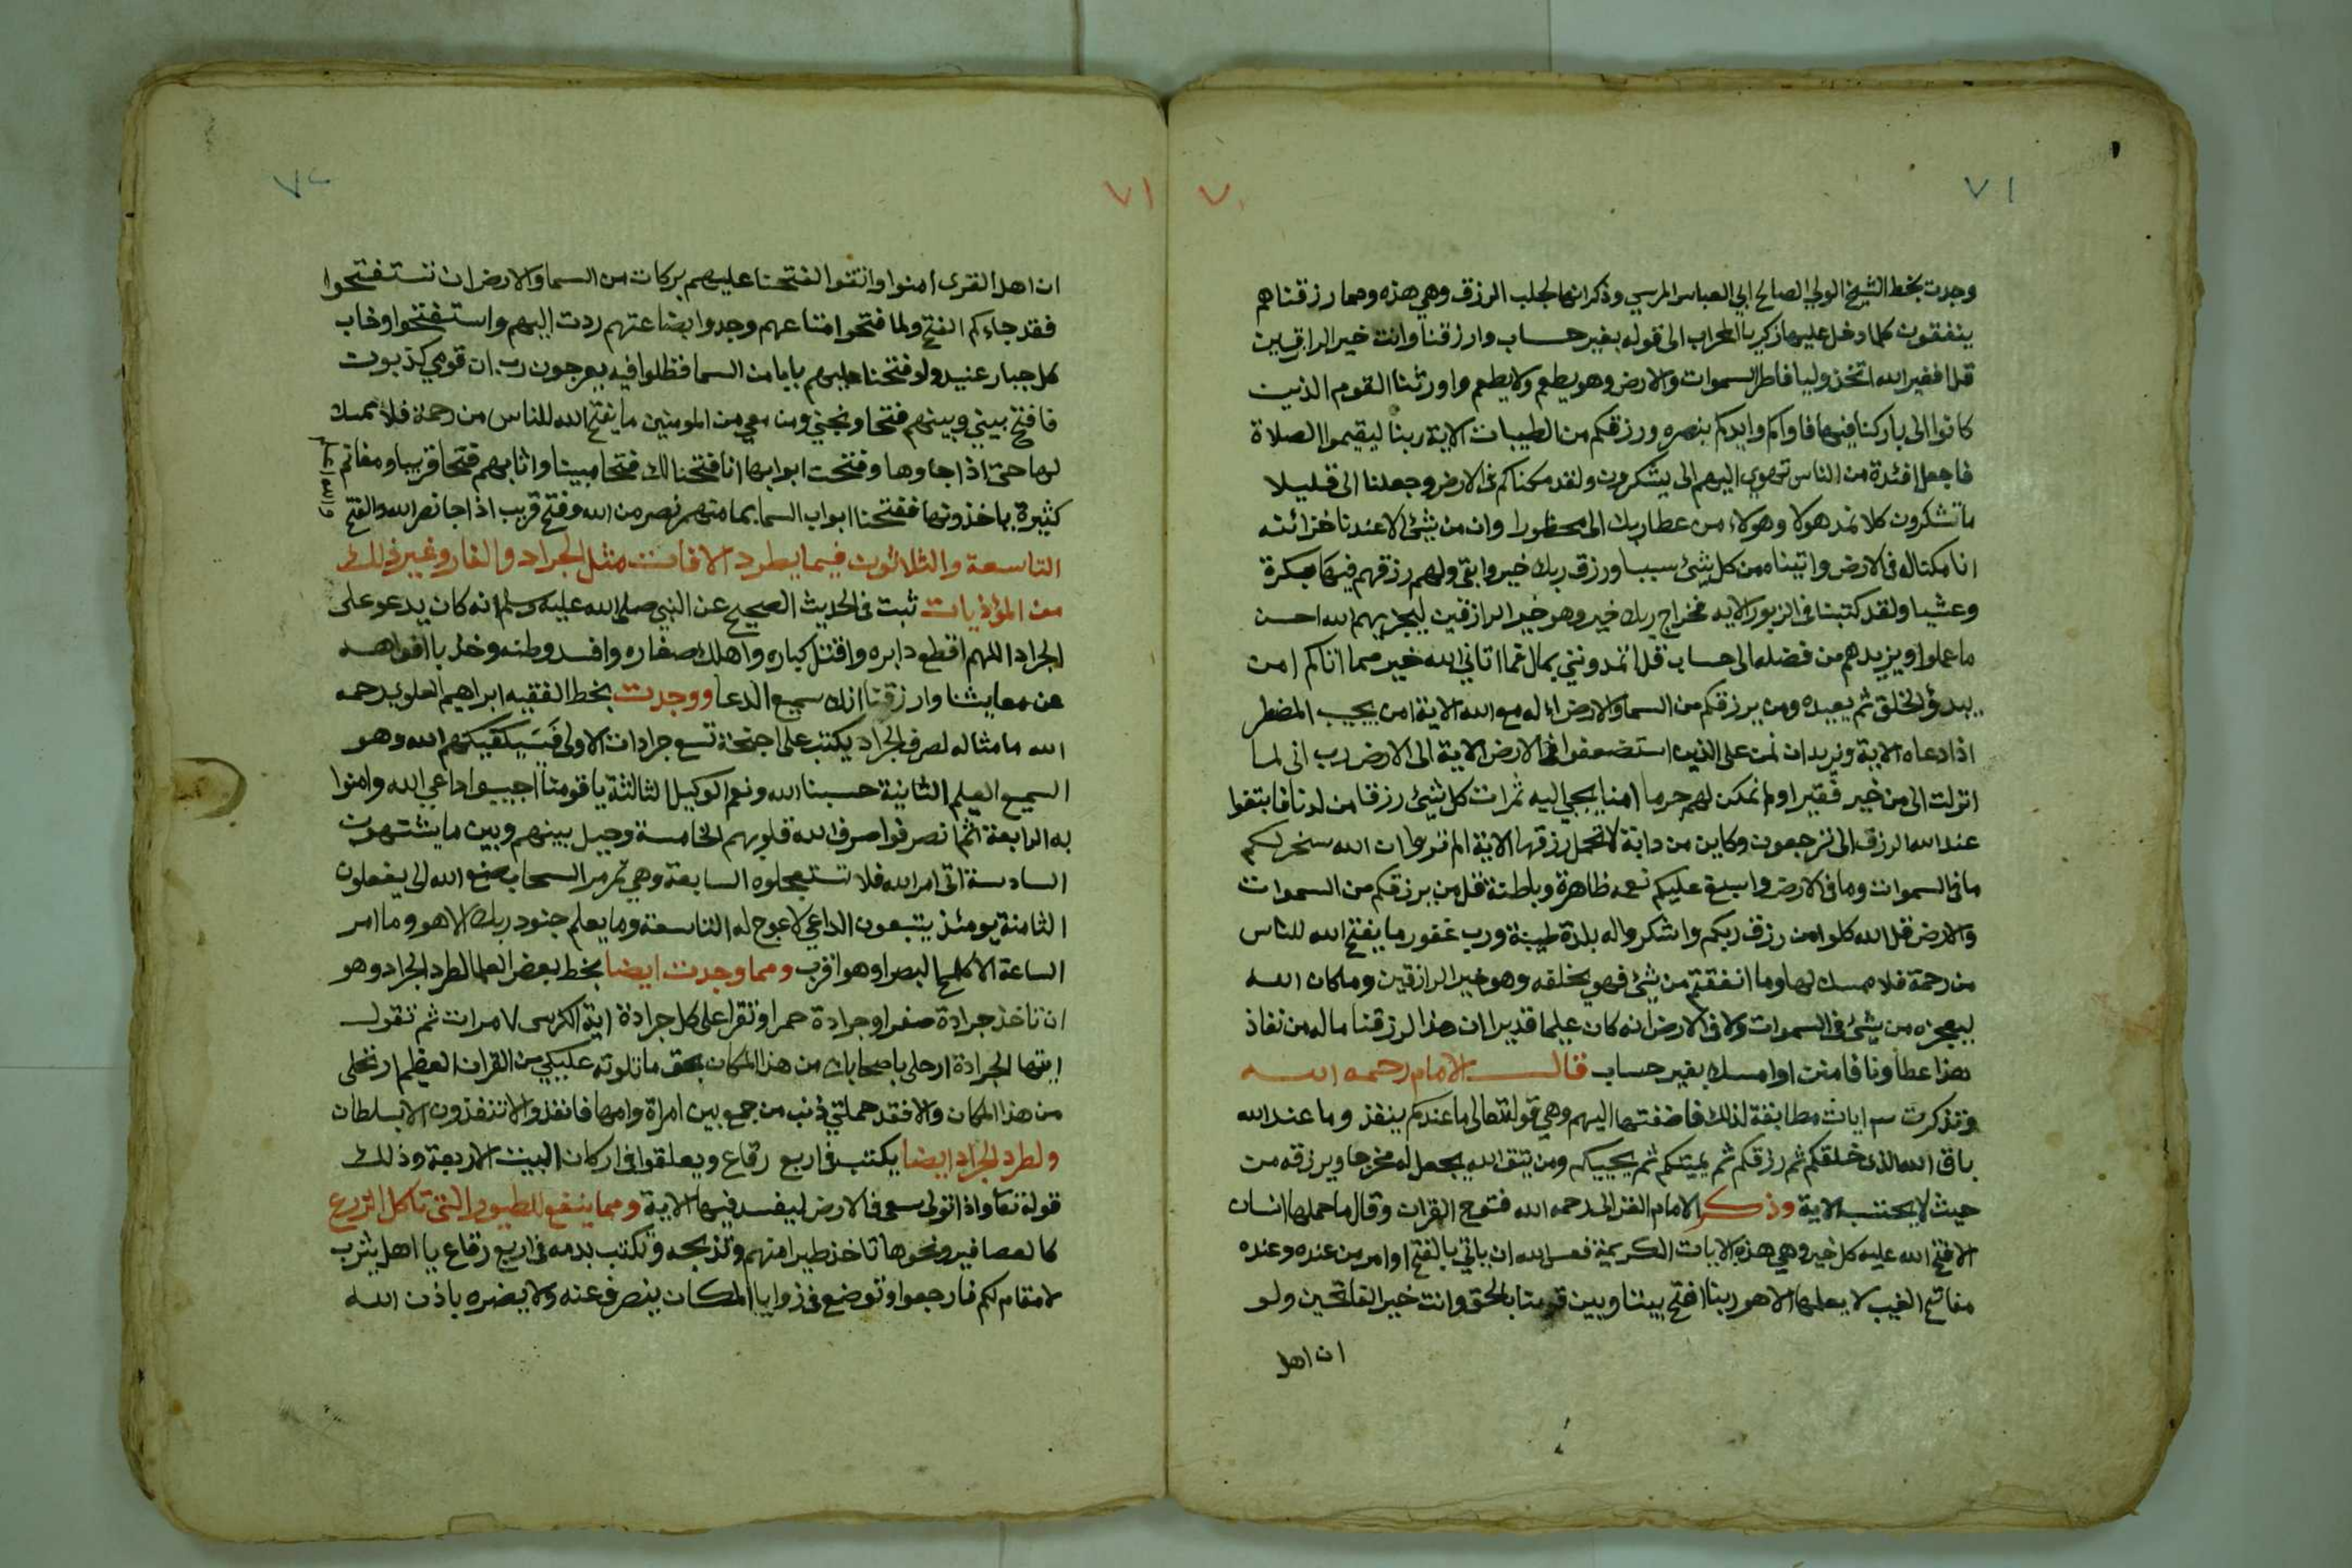 ٧١
٧٠
وجدت بخط الشيخ الولي الصالح ابي العباس المرسي وذكر انها لجلب الرزق وهي هذه ومما رزقناهم
ينفقون كلما دخل عليها زكريا المحراب الى قوله بغير حساب وارزقنا وانت خير الرازقين
قل اغير الله اتخذ وليا فاطر السموات والارض وهو يطعم ولا يطعم واورثنا القوم الذين
كانوا الى باركنا فيها فاواكم وايدكم بنصره ورزقكم من الطيبات الاية ربنا ليقيموا الصلاة
فاجعل افئدة من الناس تهوي اليهم الى يشكرون ولقد مكناكم في الارض وجعلنا الى قليلا
ما تشكرون كلا نمد هولا وهولاء من عطا ربك الى محظورا وان من شئ الا عندنا خزائنه
انا مكنا له في الارض واتيناه من كل شئ سببا ورزق ربك خير وابقى ولهم رزقهم فيها بكرة
وعشيا ولقد كتبنا في الزبور الاية فخراج ربك خير وهو خير الرازقين ليجزيهم الله احسن
ما عملوا ويزيدهم من فضله الى حساب قل اتمدونني بمال فما اتاني الله خير مما اتاكم امن
يبدؤ الخلق ثم يعيده ومن يرزقكم من السما والارض اءله مع الله الاية امن يجيب المضطر
اذا دعاه الاية ونريد ان نمن على الذين استضعفوا في الارض الاية الى الارض رب اني لما
انزلت الي من خير فقير اولم نمكن لهم حرما امنا يجبى اليه ثمرات كل شئ رزقا من لدنا فابتغوا
عند الله الرزق الى ترجعون وكاين من دابة لا تحمل رزقها الاية الم تروا ان الله سخر لكم
ما في السموات وما في الارض واسبغ عليكم نعمه ظاهرة وباطنة قل من يرزقكم من السموات
والارض قل الله كلوا من رزق ربكم واشكروا له بلدة طيبة ورب غفور ما يفتح الله للناس
من رحمة فلا ممسك لها وما انفقتم من شئ فهو يخلفه وهو خير الرازقين وما كان الله
ليعجزه من شئ في السموات ولا في الارض انه كان عليما قديرا ان هذا لرزقنا ما له من نفاذ
هذا عطاونا فامنن او امسك بغير حساب قال الامام رحمه الله
وتذكرت ٣ ايات مطابقة لذلك فاضفتها اليهم وهي قوله تعالى ما عندكم ينفذ وما عند الله
باق الله الذي خلقكم ثم رزقكم ثم يميتكم ثم يحييكم ومن يتق الله يجعل له مخرجا ويرزقه من
حيث لا يحتسب الاية وذكر الامام الغزالي رحمه الله فتوح القران وقال ما حملها انسان
الا فتح الله عليه كل خير وهي هذه الايات الكريمة فعسى الله ان ياتي بالفتح او امر من عنده وعنده
مفاتح الغيب لا يعلمها الا هو ربنا افتح بيننا وبين قومنا بالحق وانت خير الفاتحين ولو
ان اهل
٧٢
٧١
ان اهل القرى امنوا واتقوا لفتحنا عليهم بركات من السما والارض ان تستفتحوا
فقد جاءكم الفتح ولما فتحوا متاعهم وجدوا بضاعتهم ردت اليهم واستفتحوا وخاب
كل جبار عنيد ولو فتحنا عليهم بابا من السما فظلوا فيه يعرجون رب ان قومي كذبون
فافتح بيني وبينهم فتحا ونجني ومن معي من المومنين ما يفتح الله للناس من رحمة فلا ممسك
لها حتى اذا جاوها وفتحت ابوابها انا فتحنا لك فتحا مبينا واثابهم فتحا قريبا ومغانم
كثيرة ياخذونها ففتحنا ابواب السما بما منهمر نصر من الله وفتح قريب اذا جا نصر الله والفتح
التاسعة والثلاثون فيما يطرد الافات مثل الجراد والفار وغير ذلك
من المؤذيات ثبت في الحديث الصحيح عن النبي صلى الله عليه وسلم انه كان يدعو على
الجراد اللهم اقطع دابره واقتل كباره واهلك صغاره وافسد وطنه وخذ بافواهه
عن معايشنا وارزقنا انك سميع الدعا ووجدت بخط الفقيه ابراهيم العلوي رحمه
الله ما مثاله لصرف الجراد يكتب على اجنحة تسع جرادات الاولى فسيكفيكهم الله وهو
السميع العليم الثانية حسبنا الله ونعم الوكيل الثالثة يا قومنا اجيبوا داعي الله وامنوا
به الرابعة ثم انصرفوا صرف الله قلوبهم الخامسة وحيل بينهم وبين ما يشتهون
السادسة اتى امر الله فلا تستعجلوه السابعة وهي تمر مر السحاب صنع الله الى يفعلون
الثامنة يومئذ يتبعون الداعي لا عوج له التاسعة وما يعلم جنود ربك الا هو وما امر
الساعة الا كلمح البصر او هو اقرب ومما وجدت ايضا بخط بعض العلما لطرد الجراد وهو
ان تاخذ جرادة صفرا وجرادة حمرا وتقرا على كل جرادة اية الكرسي ٧ مرات ثم تقول
ايتها الجرادة ارحلي باصحابك من هذا المكان بحق ما تلوته عليكي من القران العظيم ارتحلى
من هذا المكان والا فقد حملتي ذنب من جمع بين امراة وامها فانفذوا لا تنفذون الا بسلطان
ولطرد الجراد ايضا يكتب في اربع رقاع ويعلقوا في اركان البيت الاربعة وذلك
قوله تعا واذا تولى سعى في الارض ليفسد فيها الاية ومما ينفع للطيور التي تاكل الزرع
كالعصافير ونحوها تاخذ طيرا منهم وتذبحه وتكتب بدمه في اربع رقاع يا اهل يثرب
لا مقام لكم فارجعوا وتوضع في زوايا المكان ينصرف عنه ولا يضره باذن الله